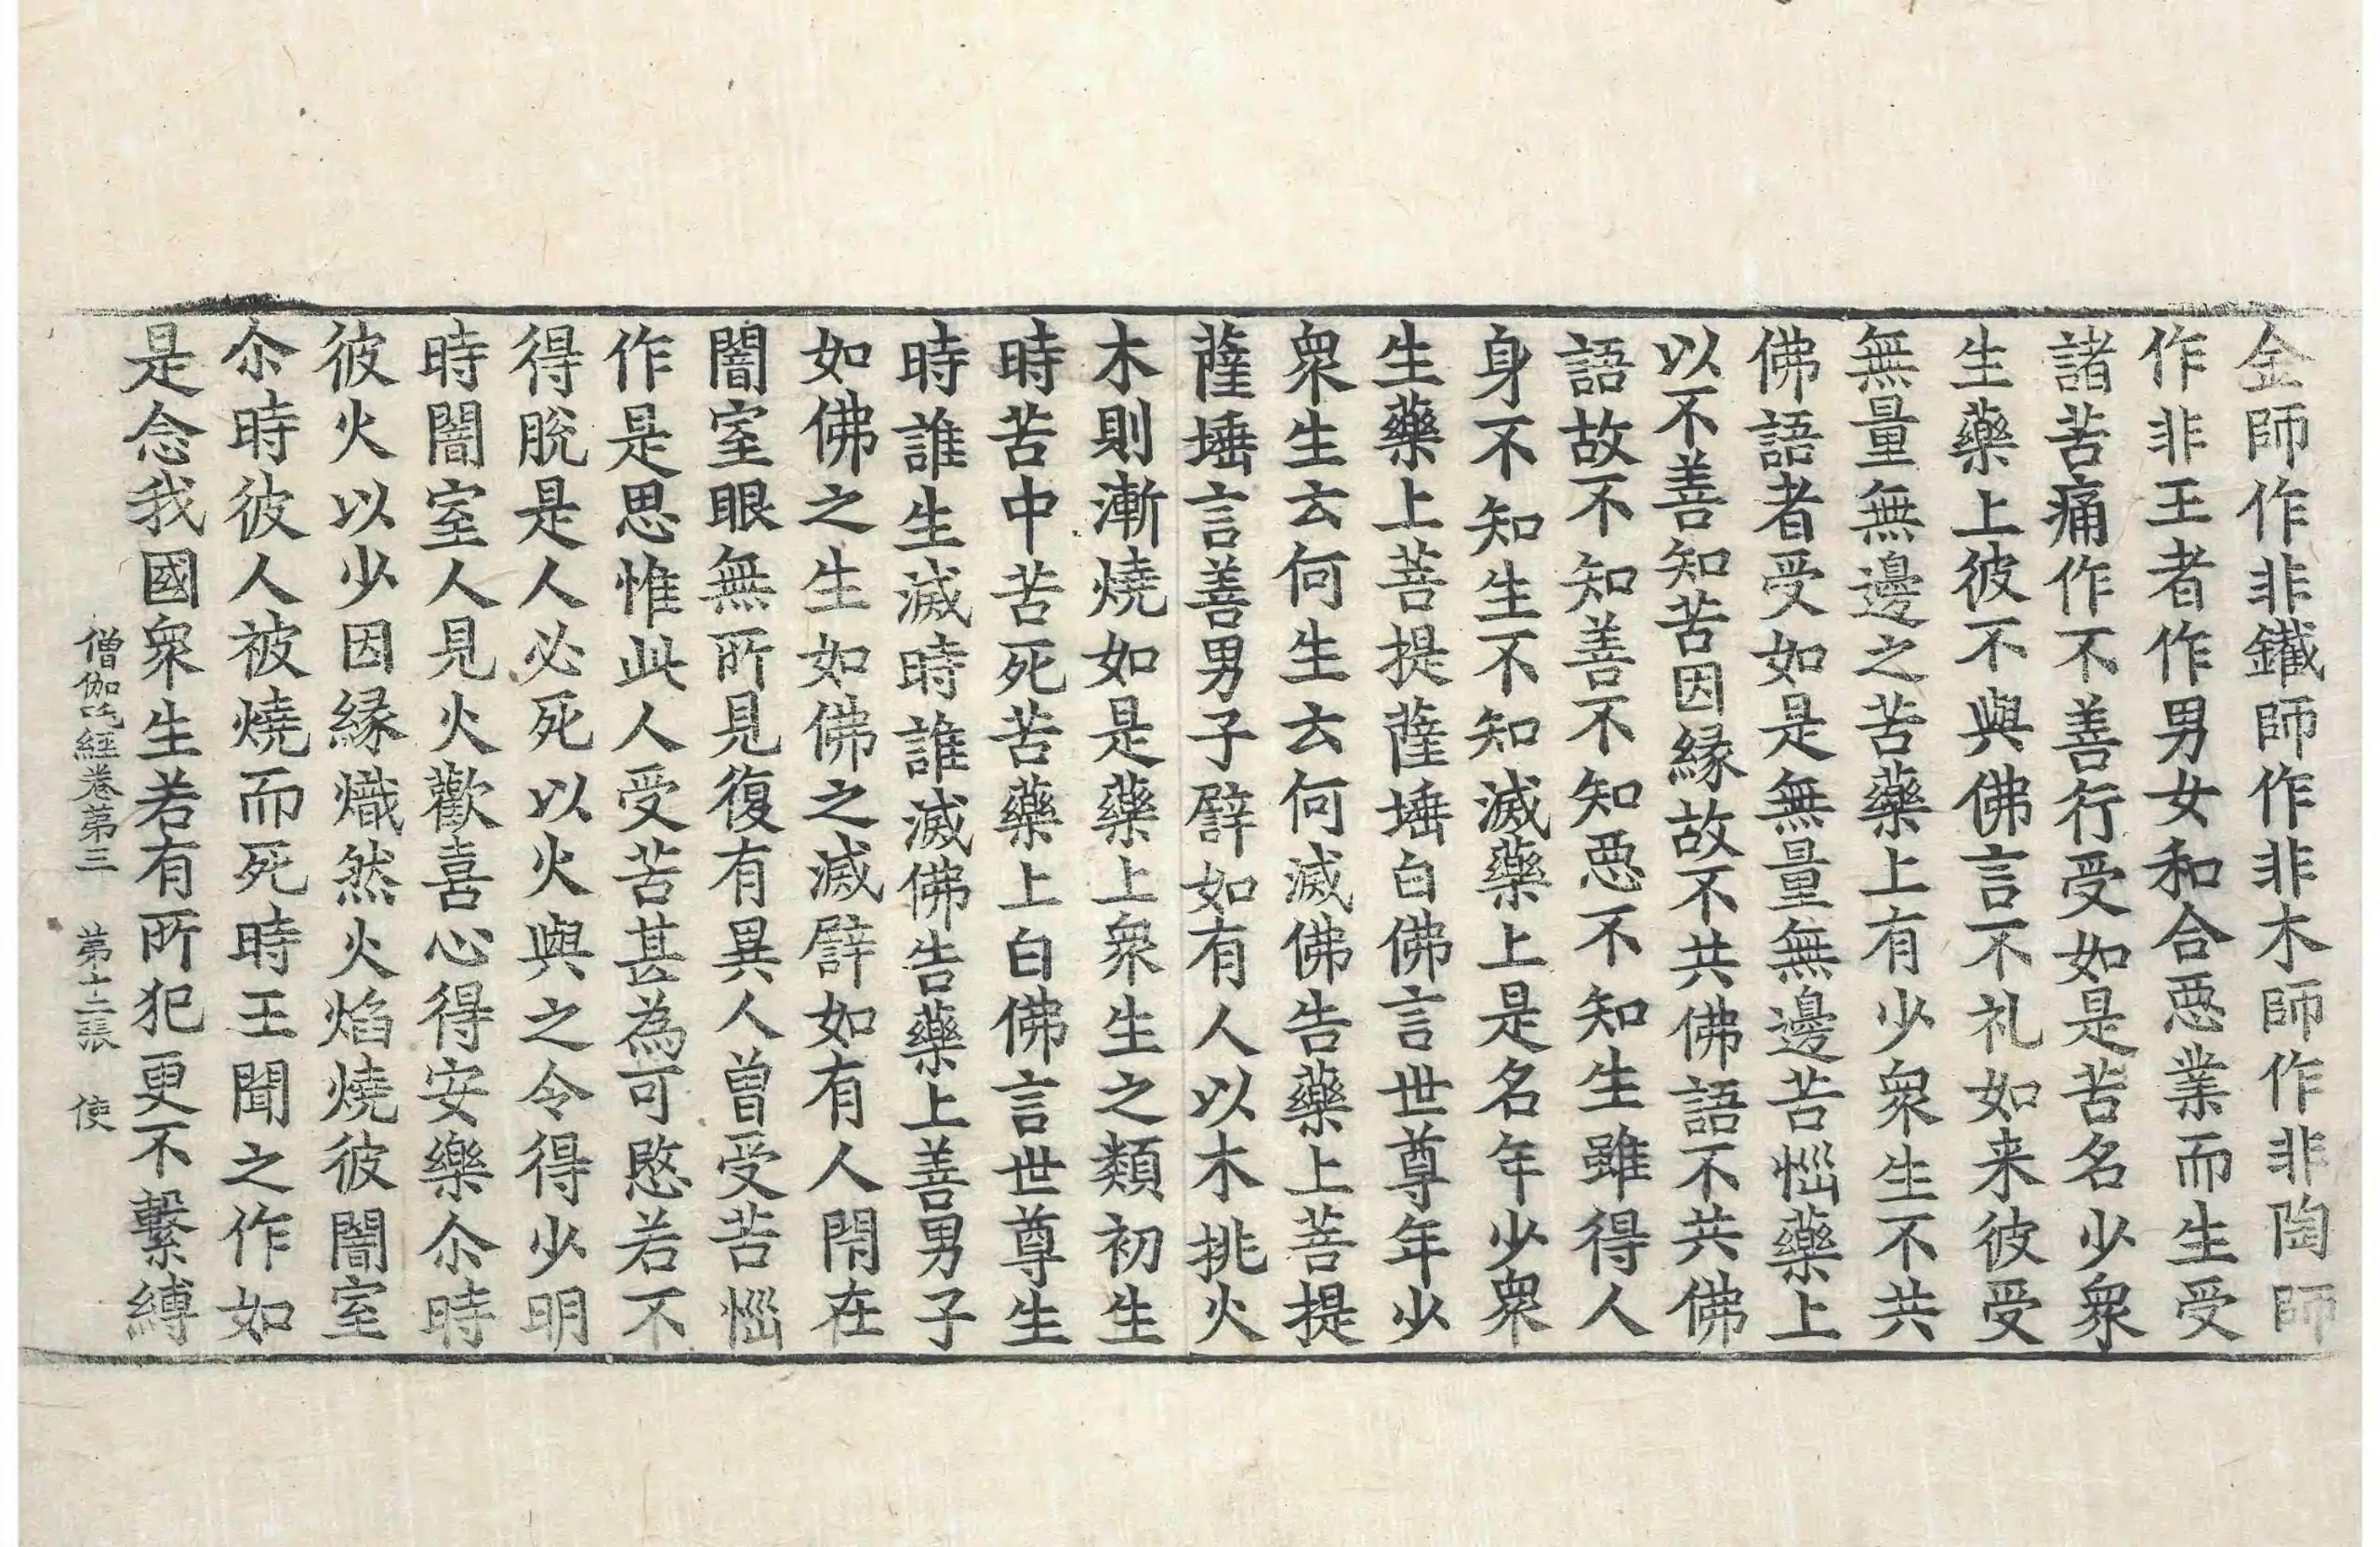 金師作非鐵師作非木師作非陶師
作非王者作男女和合惡業而生受
諸苦痛作不善行受如是苦名少衆
生藥上彼不與佛言不礼如来彼受
無量無邊之苦藥上有少衆生不共
佛語者受如是無量無邊苦惱藥上
以不善知苦因縁故不共佛語不共佛
語故不知善不知惡不知生雖得人
身不知生不知滅藥上是名年少衆
生藥上菩提薩埵白佛言世尊年少
衆生云何生云何滅佛告藥上菩提
薩埵言善男子譬如有人以木挑火
木則漸燒如是藥上衆生之類初生
時苦中苦死苦藥上白佛言世尊生
時誰生滅時誰滅佛告藥上善男子
如佛之生如佛之滅譬如有人閇在
闇室眼無所見復有異人曾受苦惱
作是思惟此人受苦甚為可愍若不
得脫是人必死以火與之令得少明
時闇室人見火歡喜心得安樂尒時
彼火以少因縁熾然火焰燒彼闇室
尒時彼人被燒而死時王聞之作如
是念我國衆生若有所犯更不繫縛
僧伽吒經卷第三 第十二張 使